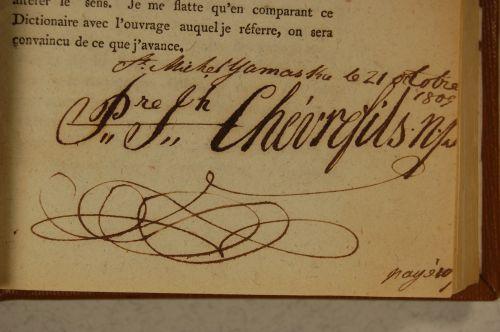 altérer le sens. Je me flatte qu'en comparant ce
Dictionaire avec l'ouvrage auquel je réfere, on sera
convaincu de ce que j'avance.
St. Michel Yamaska le 21 octobre
1809
Pre Jh Chévrefils
payé